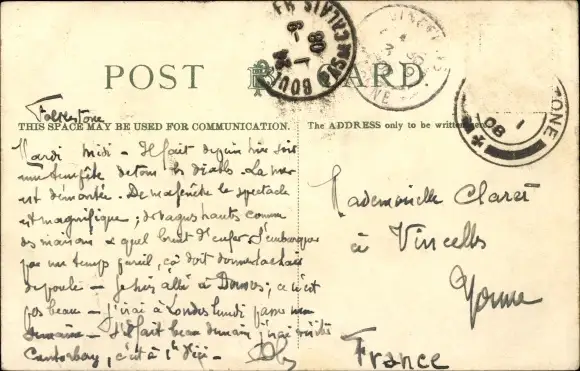 POST CARD
CALAIS
PAS
BOU
08
Folkestone
THIS SPACE MAY BE USED FOR COMMUNICATION.
The ADDRESS only to be written
ONE
08
Mardi midi - Il fait depuis hier soir
une tempête de tous les diables. La mer
est démontée. De ma fenêtre le spectacle
est magnifique; des vagues hauts comme
des maisons & quel bruit d'enfer. S'embarquer
par un temps pareil, ça doit donner la chair
de poule - Je suis allé à Douvres; ce n'est
pas beau - J'irai à Londres lundi
semaine - S'il fait beau demain j'irai
Cantorbery, c'est à 1h d'ici -
Mademoiselle Claret
à Vincelles
Yonne
France